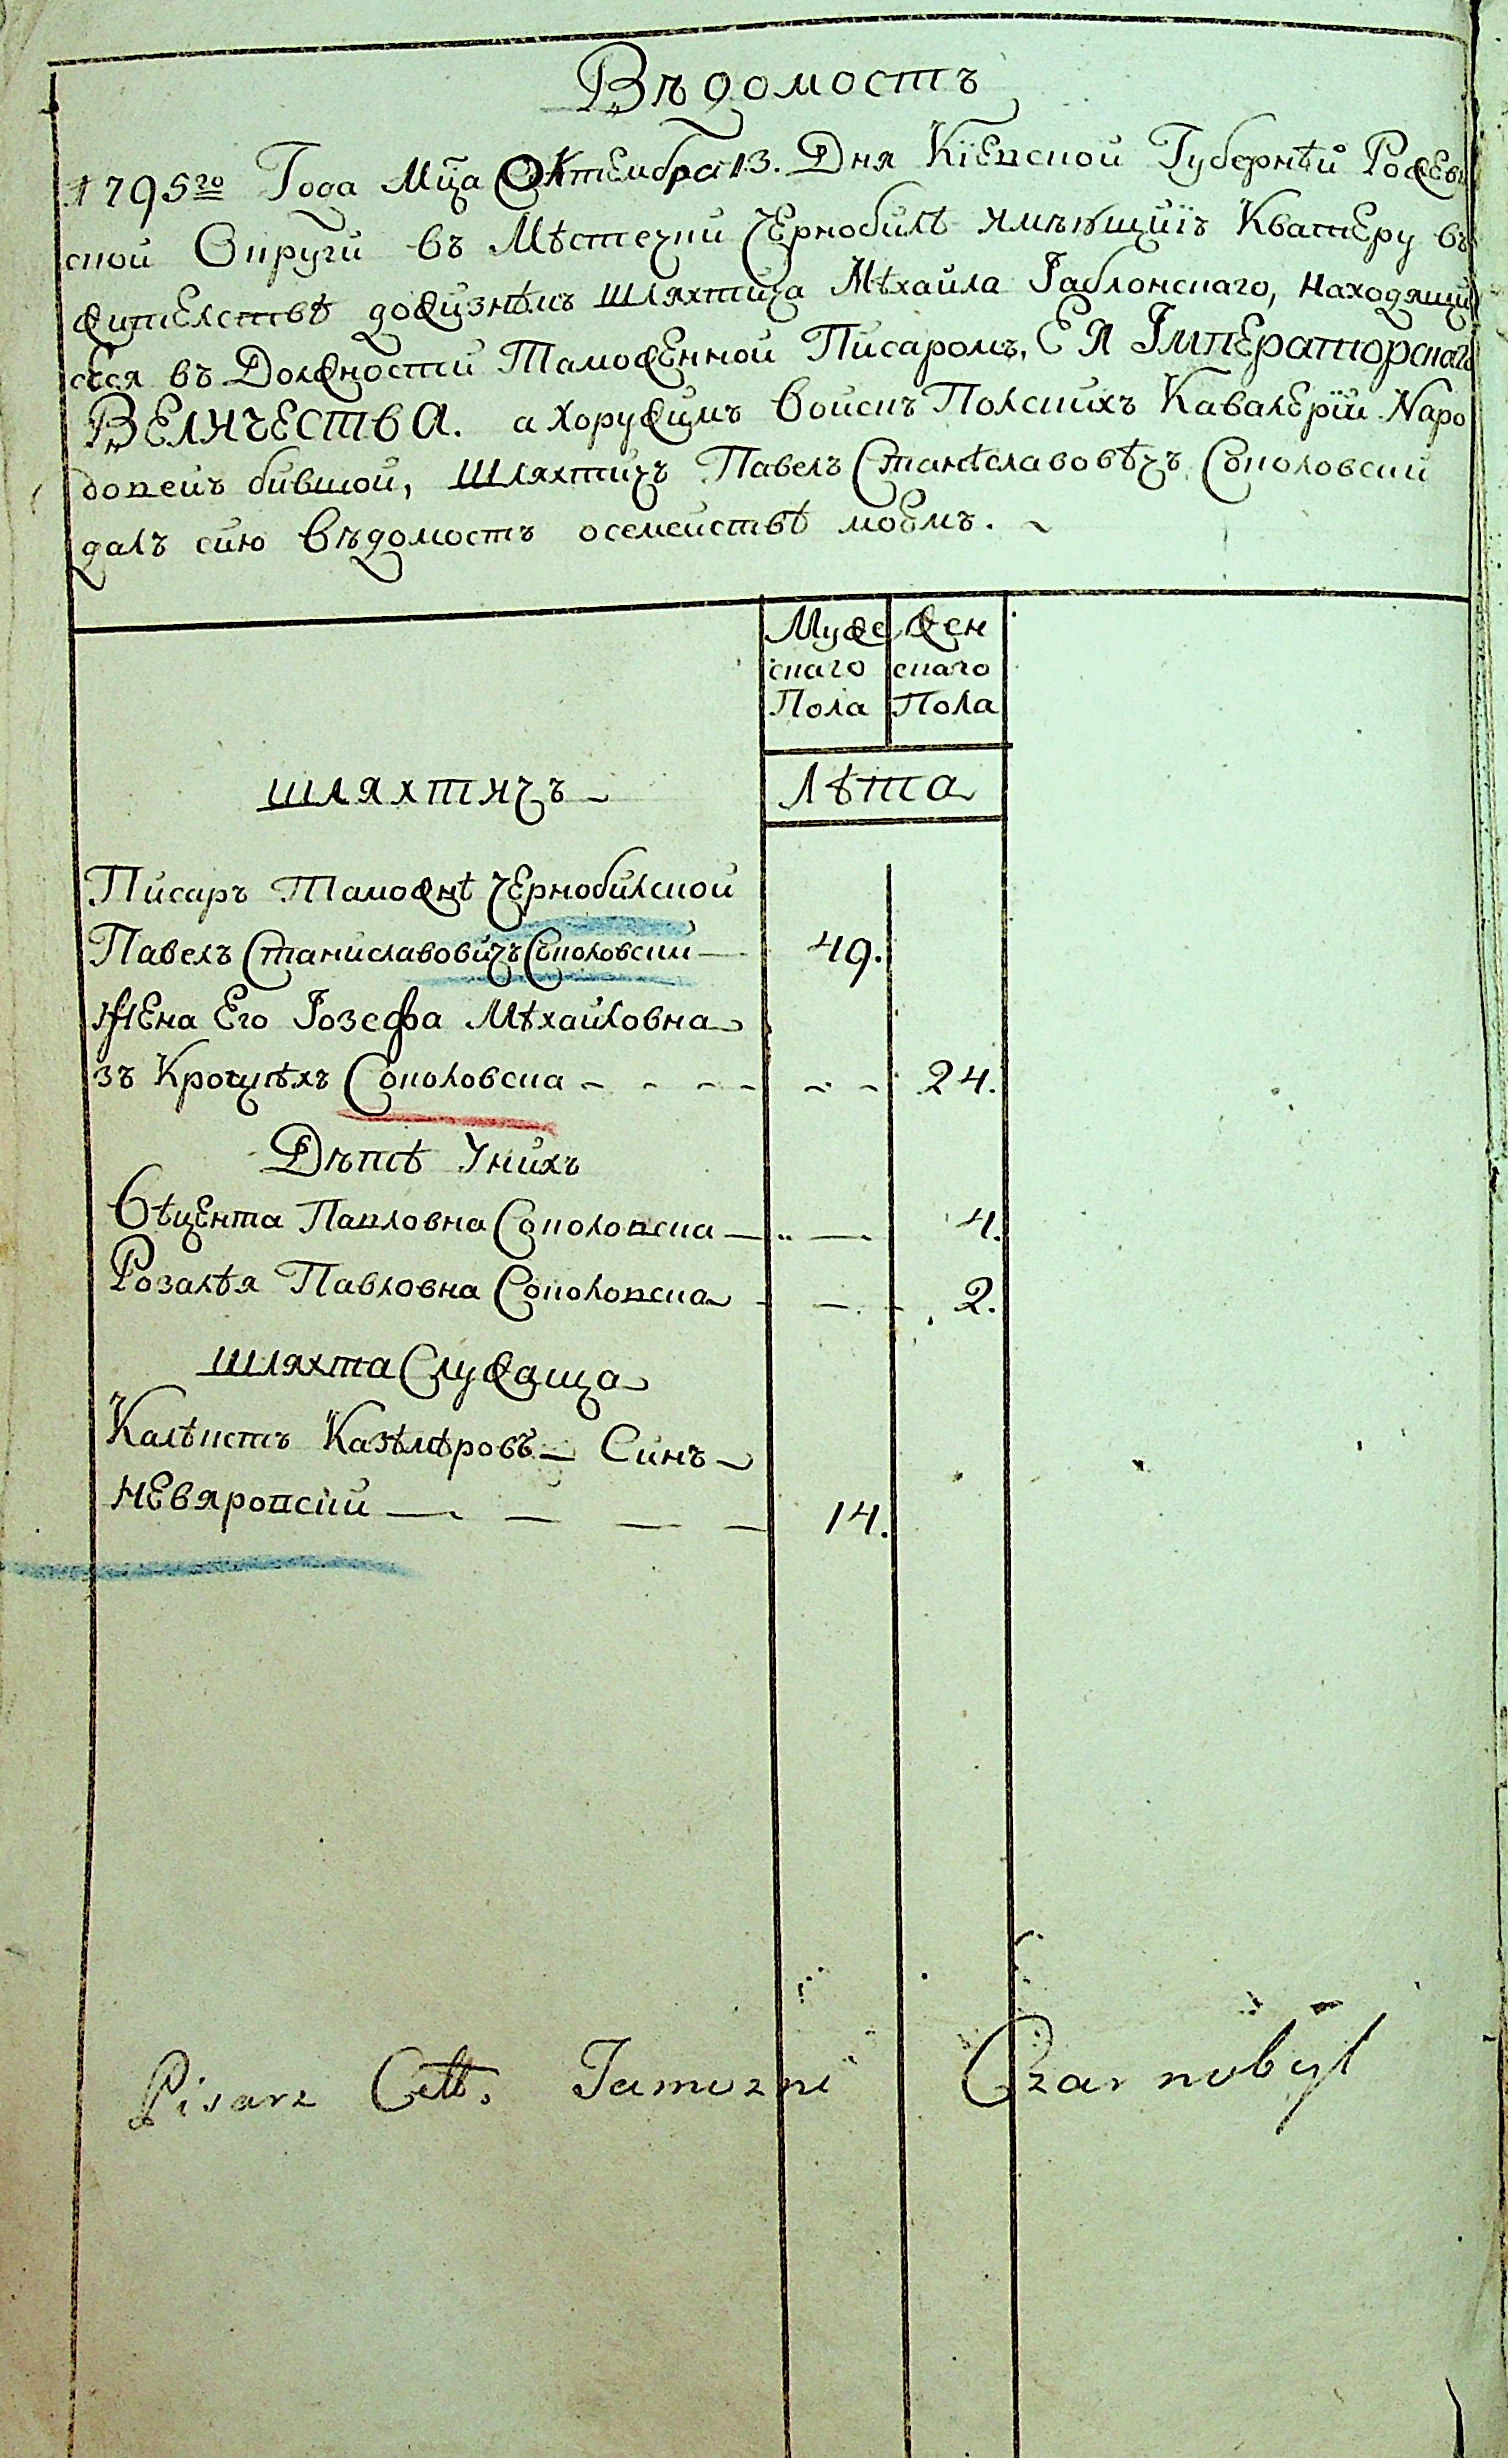 Вѣдомостъ
1795го Года Мца Октембра 13. Дня Кїевской Губернѣй Рожев
ской Округи въ Мѣстечки Чернобилѣ имѣющийїъ Кватеру въ
жителствѣ дожизнѣмъ Шляхтича Мѣхайла Іаблонскаго, находящи
сѣся въ Должности Таможенной Писаромъ, ЕЯ Імператорскаго
ВЕЛИЧЕСТВА. а Хоружимъ Войскъ Полскихъ Кавалерїй Наро
довей бившой, Шляхтичъ Павелъ Станѣславовѣчъ Соколовский
далъ сию Вѣдомостъ осемействѣ моемъ.
Муже Жен
скаго скаго
Пола Пола
Шляхтичъ Лѣта
Писаръ Таможнѣ Чернобилской
Павелъ Станиславовичъ Соколовский 49.
Жена Его Іозефа Мѣхайловна
зъ Соколовска 24.
Дѣтѣ Унихъ
Вѣцента Павловна Соколовска 4.
Розалѣя Павловна Соколовска 2.
Шляхта Служаща
Калѣкстъ Казѣмѣровъ Синъ
Невяровский 14.
Pisarz Tamożni Czarnobyl